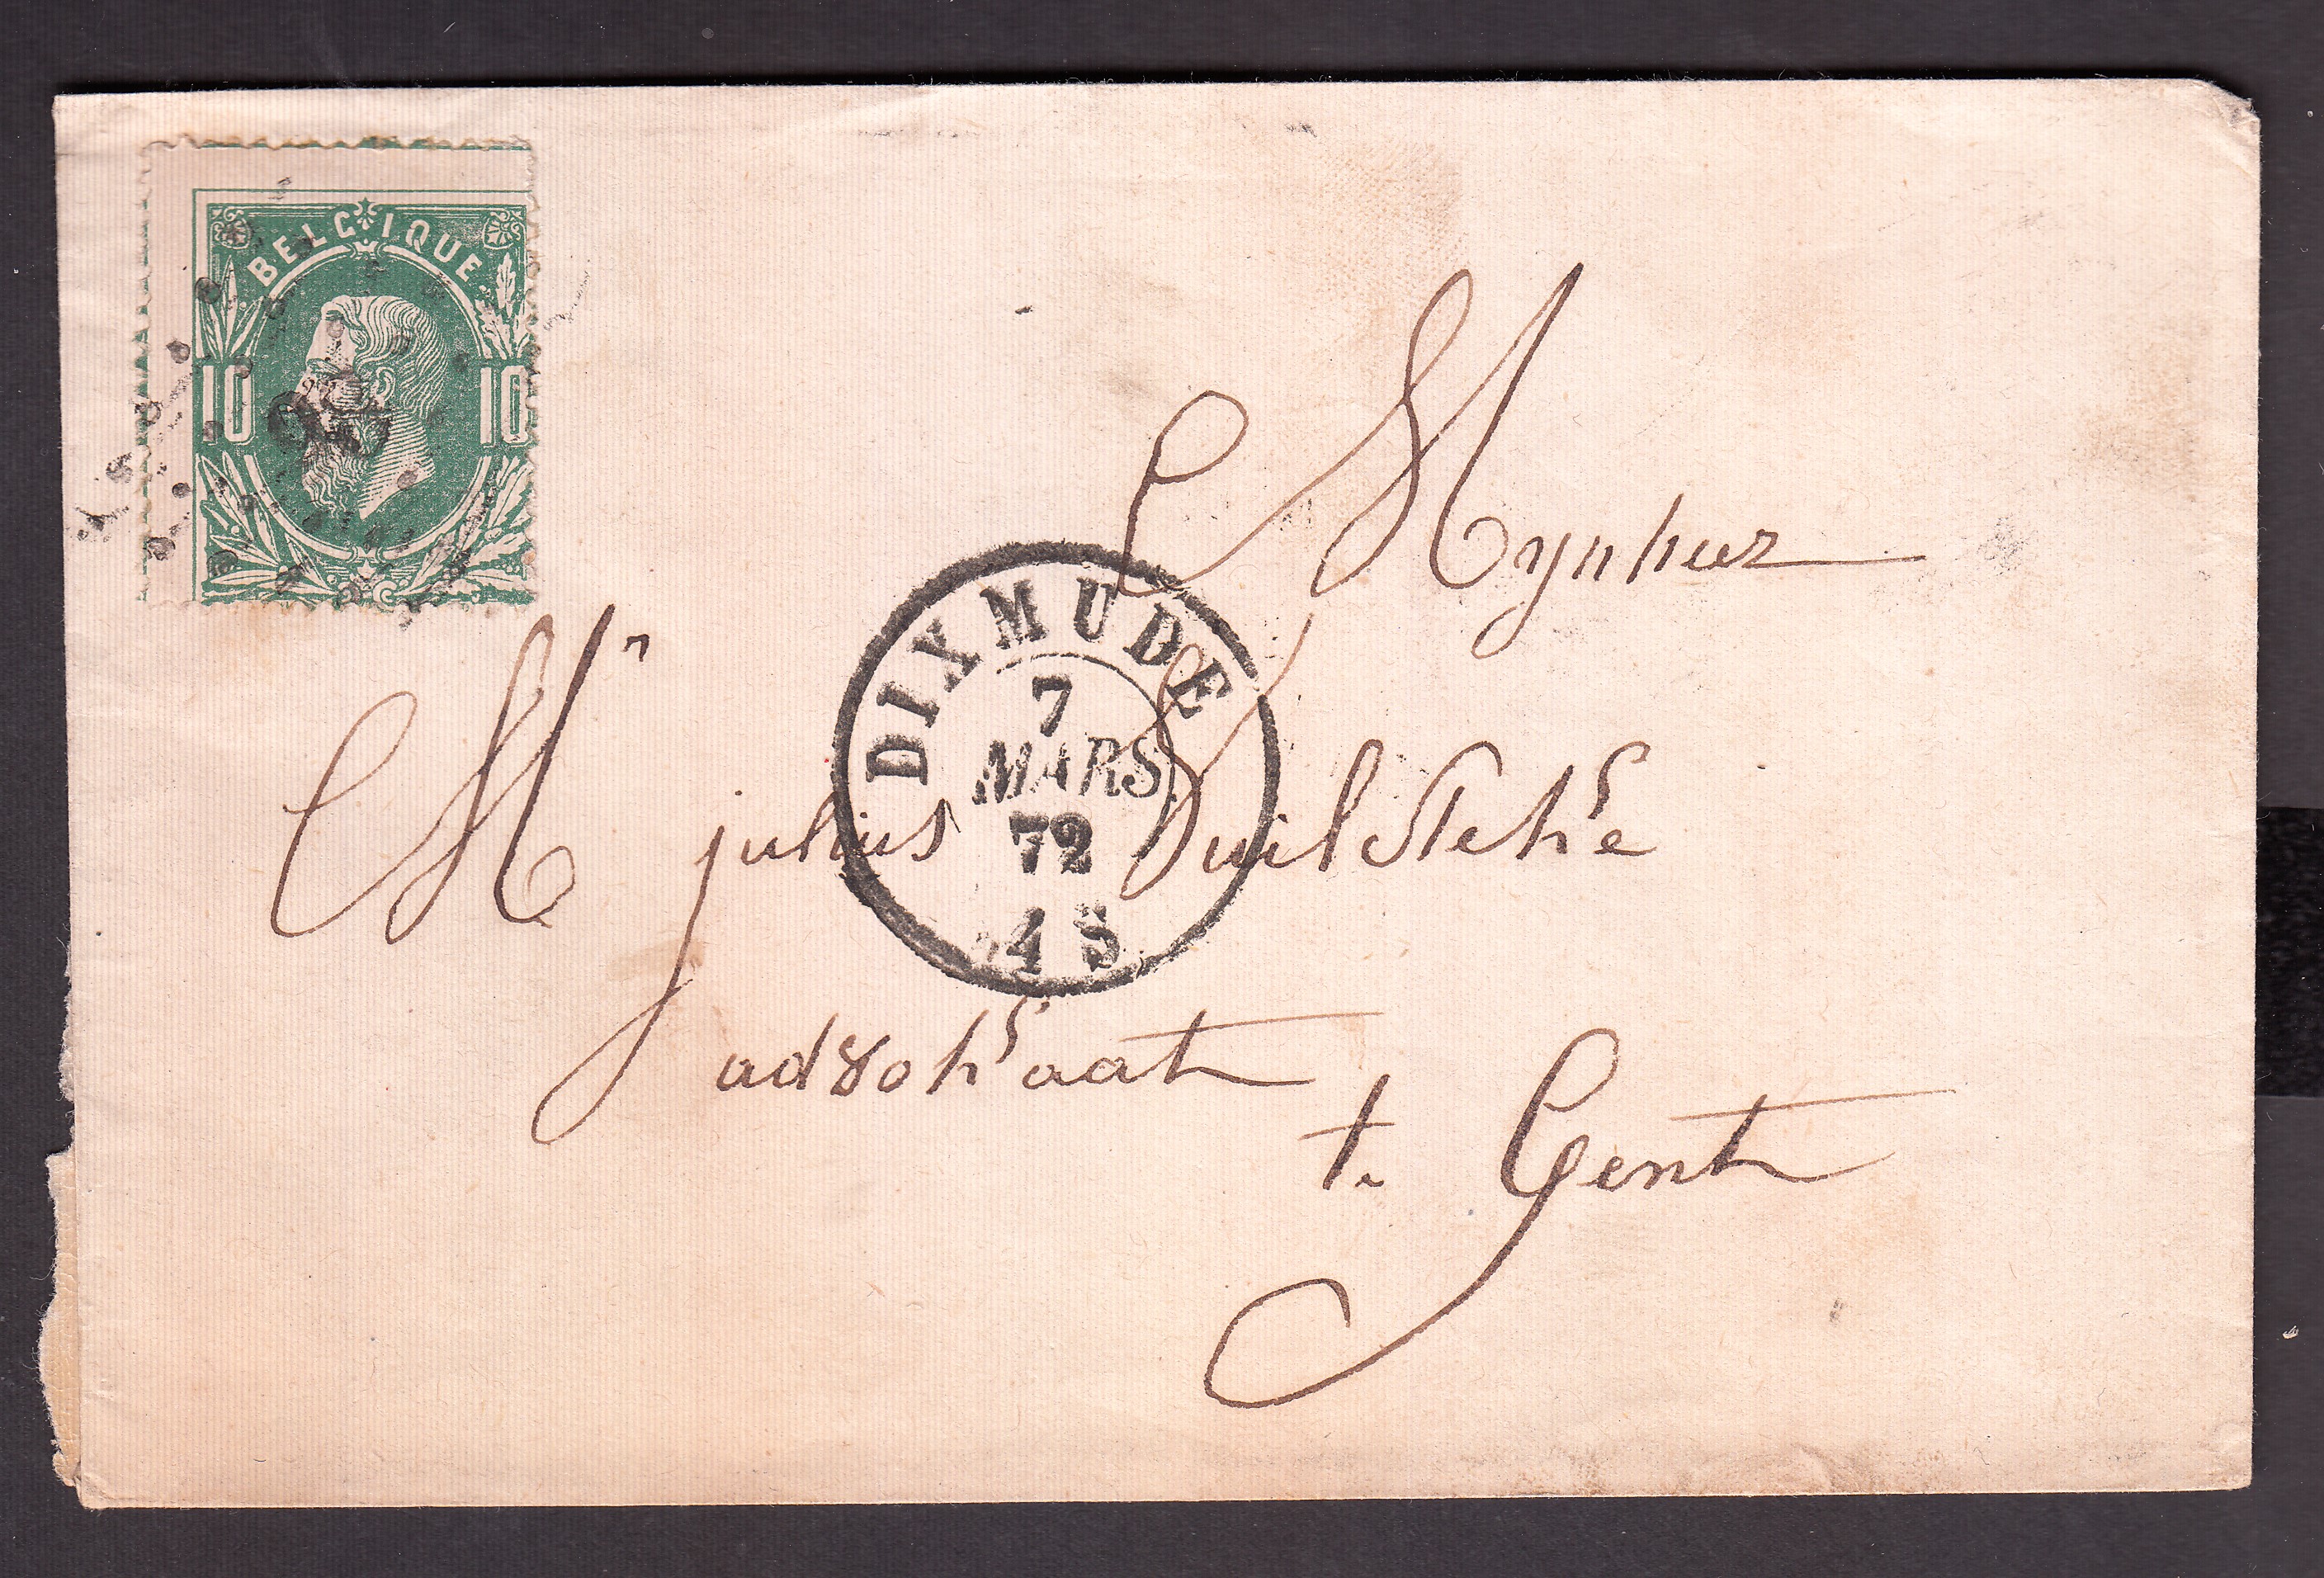 BELGIQUE
10 10
Mynheer
DIXMUDE
7
MARS
72
4 S
Mr julius
advokaat
te Gent